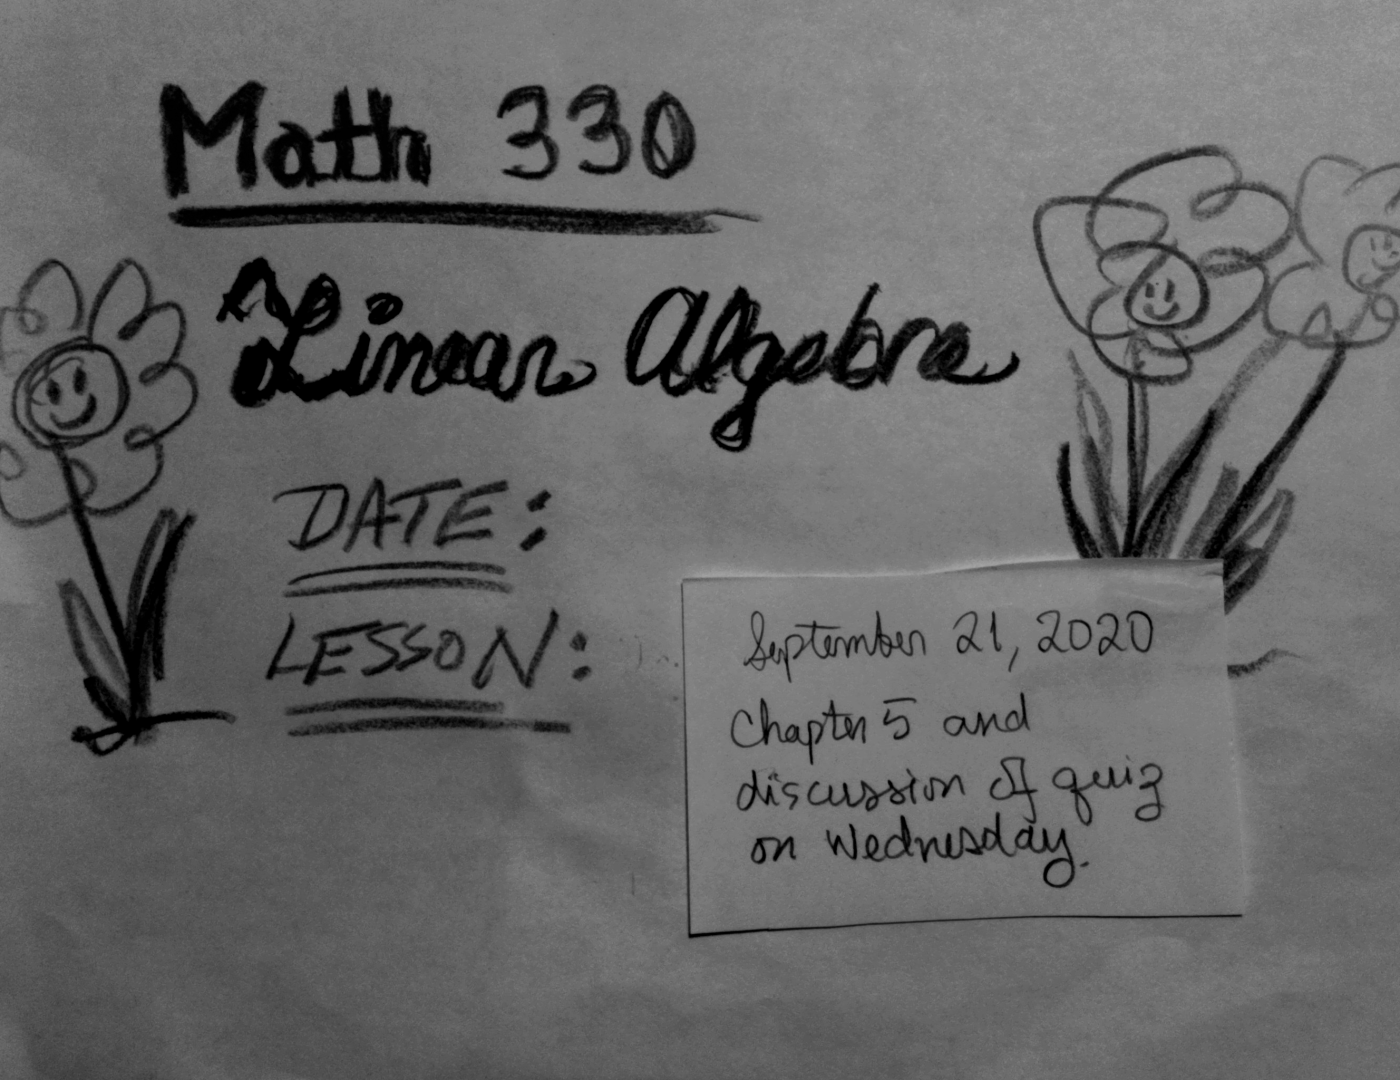 Math 330
Linear Algebra
DATE:
LESSON:
September 21, 2020
Chapter 5 and
discussion of quiz
on Wednesday.